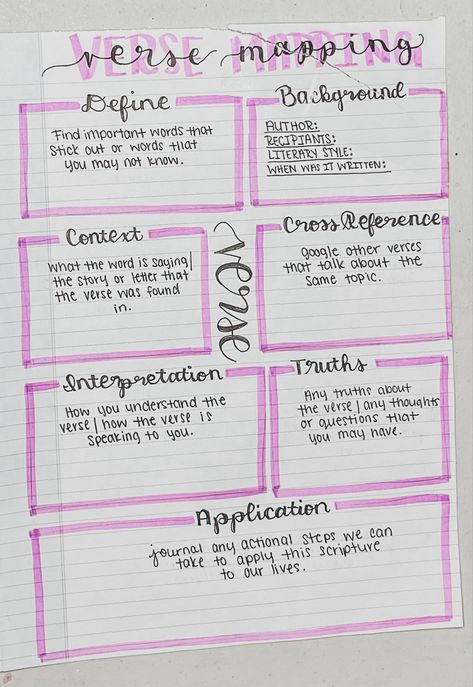 VERSE MAPPING
verse mapping
Define
Find important words that
stick out or words that
you may not know.
Background
AUTHOR:
RECIPIANTS:
LITERARY STYLE:
WHEN WAS IT WRITTEN:
Context
What the word is saying/
the story or letter that
the verse was found
in.
verse
Cross Reference
google other verses
that talk about the
same topic.
Interpretation
How you understand the
verse/how the verse is
speaking to you.
Truths
Any truths about
the verse/any thoughts
or questions that
you may have.
Application
journal any actional steps we can
take to apply this scripture
to our lives.